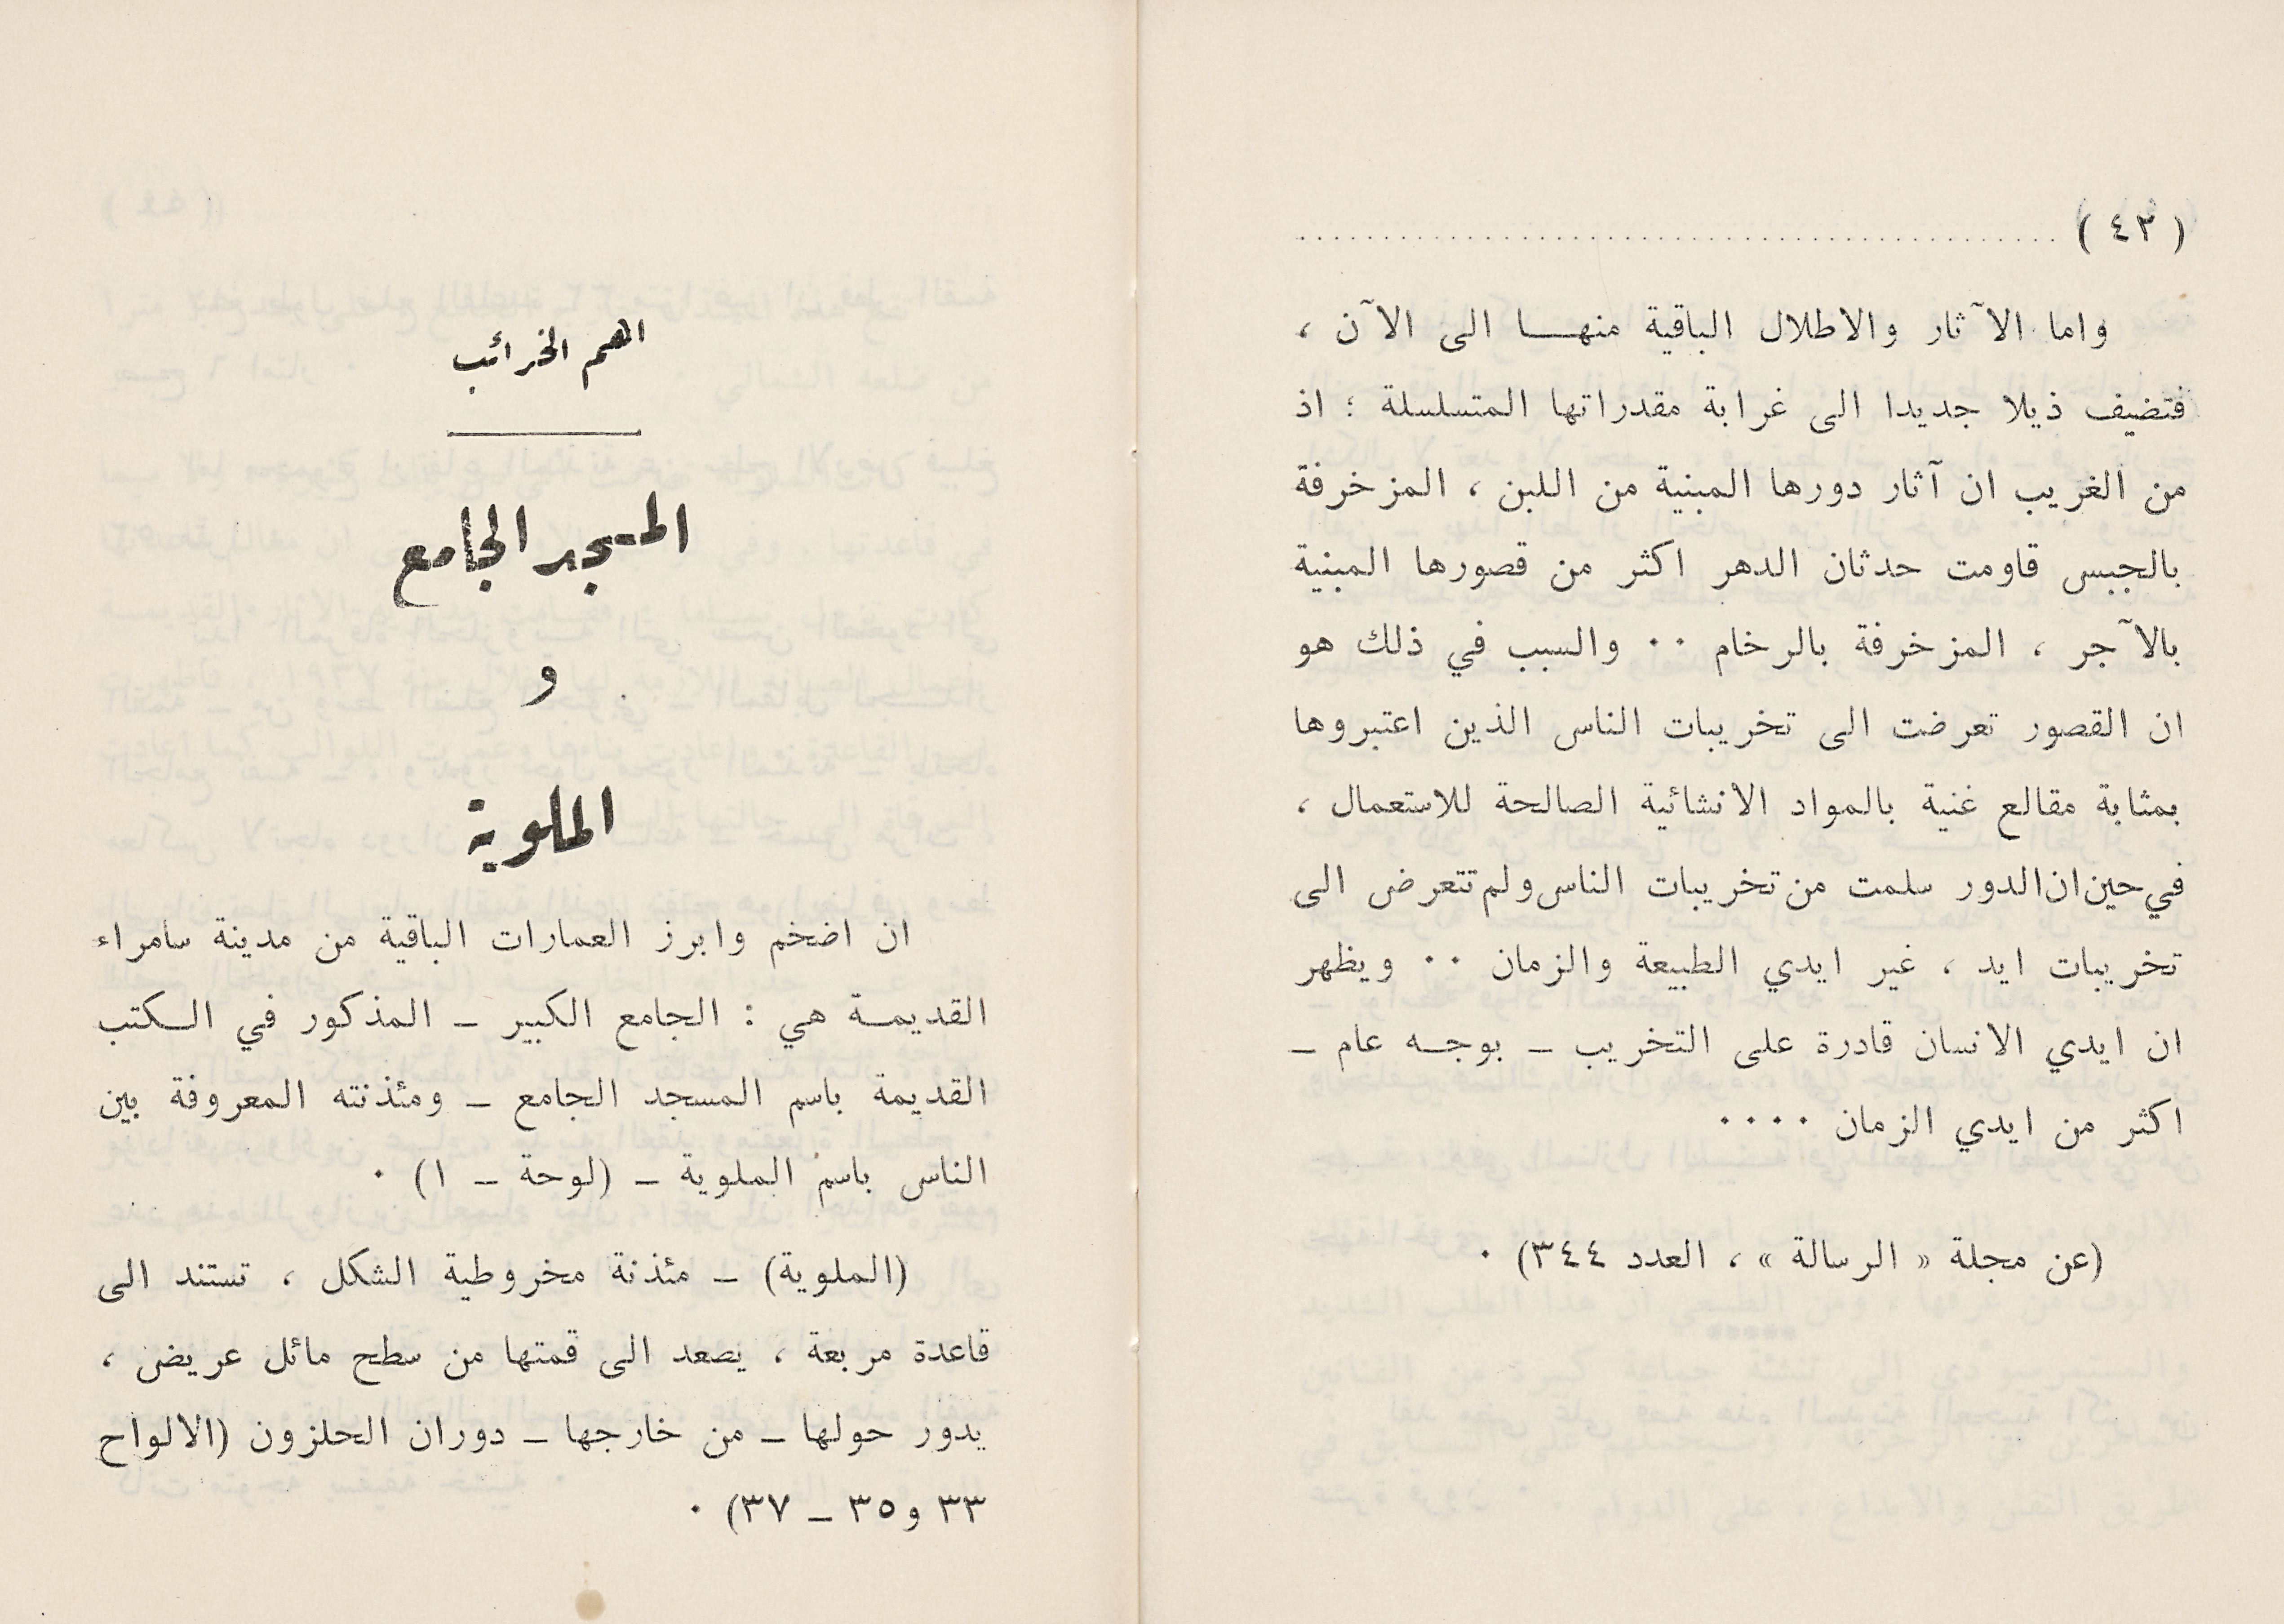 ( ٤٢ )
واما الآثار والاطلال الباقية منهـــا الى الآن ،
فتضيف ذيلا جديدا الى غرابة مقدراتها المتسلسلة ؛ اذ
من الغريب ان آثار دورها المبنية من اللبن ، المزخرفة
بالجبس قاومت حدثان الدهر اكثر من قصورها المبنية
بالآجر ، المزخرفة بالرخام ٠٠ والسبب في ذلك هو
ان القصور تعرضت الى تخريبات الناس الذين اعتبروها
بمثابة مقالع غنية بالمواد الانشائية الصالحة للاستعمال ،
في حين ان الدور سلمت من تخريبات الناس ولم تتعرض الى
تخريبات ايد ، غير ايدي الطبيعة والزمان ٠٠ ويظهر
ان ايدي الانسان قادرة على التخريب ــ بوجـه عام ــ
اكثر من ايدي الزمان ٠٠٠٠
(عن مجلة « الرسالة » ، العدد ٣٤٤) ٠
اهم الخرائب
المسجد الجامع
و
الملوية
ان اضخم وابرز العمارات الباقية من مدينة سامراء
القديمـة هي : الجامع الكبير ــ المذكور في الـكتب
القديمة باسم المسجد الجامع ــ ومئذنته المعروفة بين
الناس باسم الملوية ــ (لوحة ــ ١) ٠
(الملوية) ــ مئذنة مخروطية الشكل ، تستند الى
قاعدة مربعة ، يصعد الى قمتها من سطح مائل عريض ،
يدور حولها ــ من خارجها ــ دوران الحلزون (الالواح
٣٣ و٣٥ ــ ٣٧) ٠